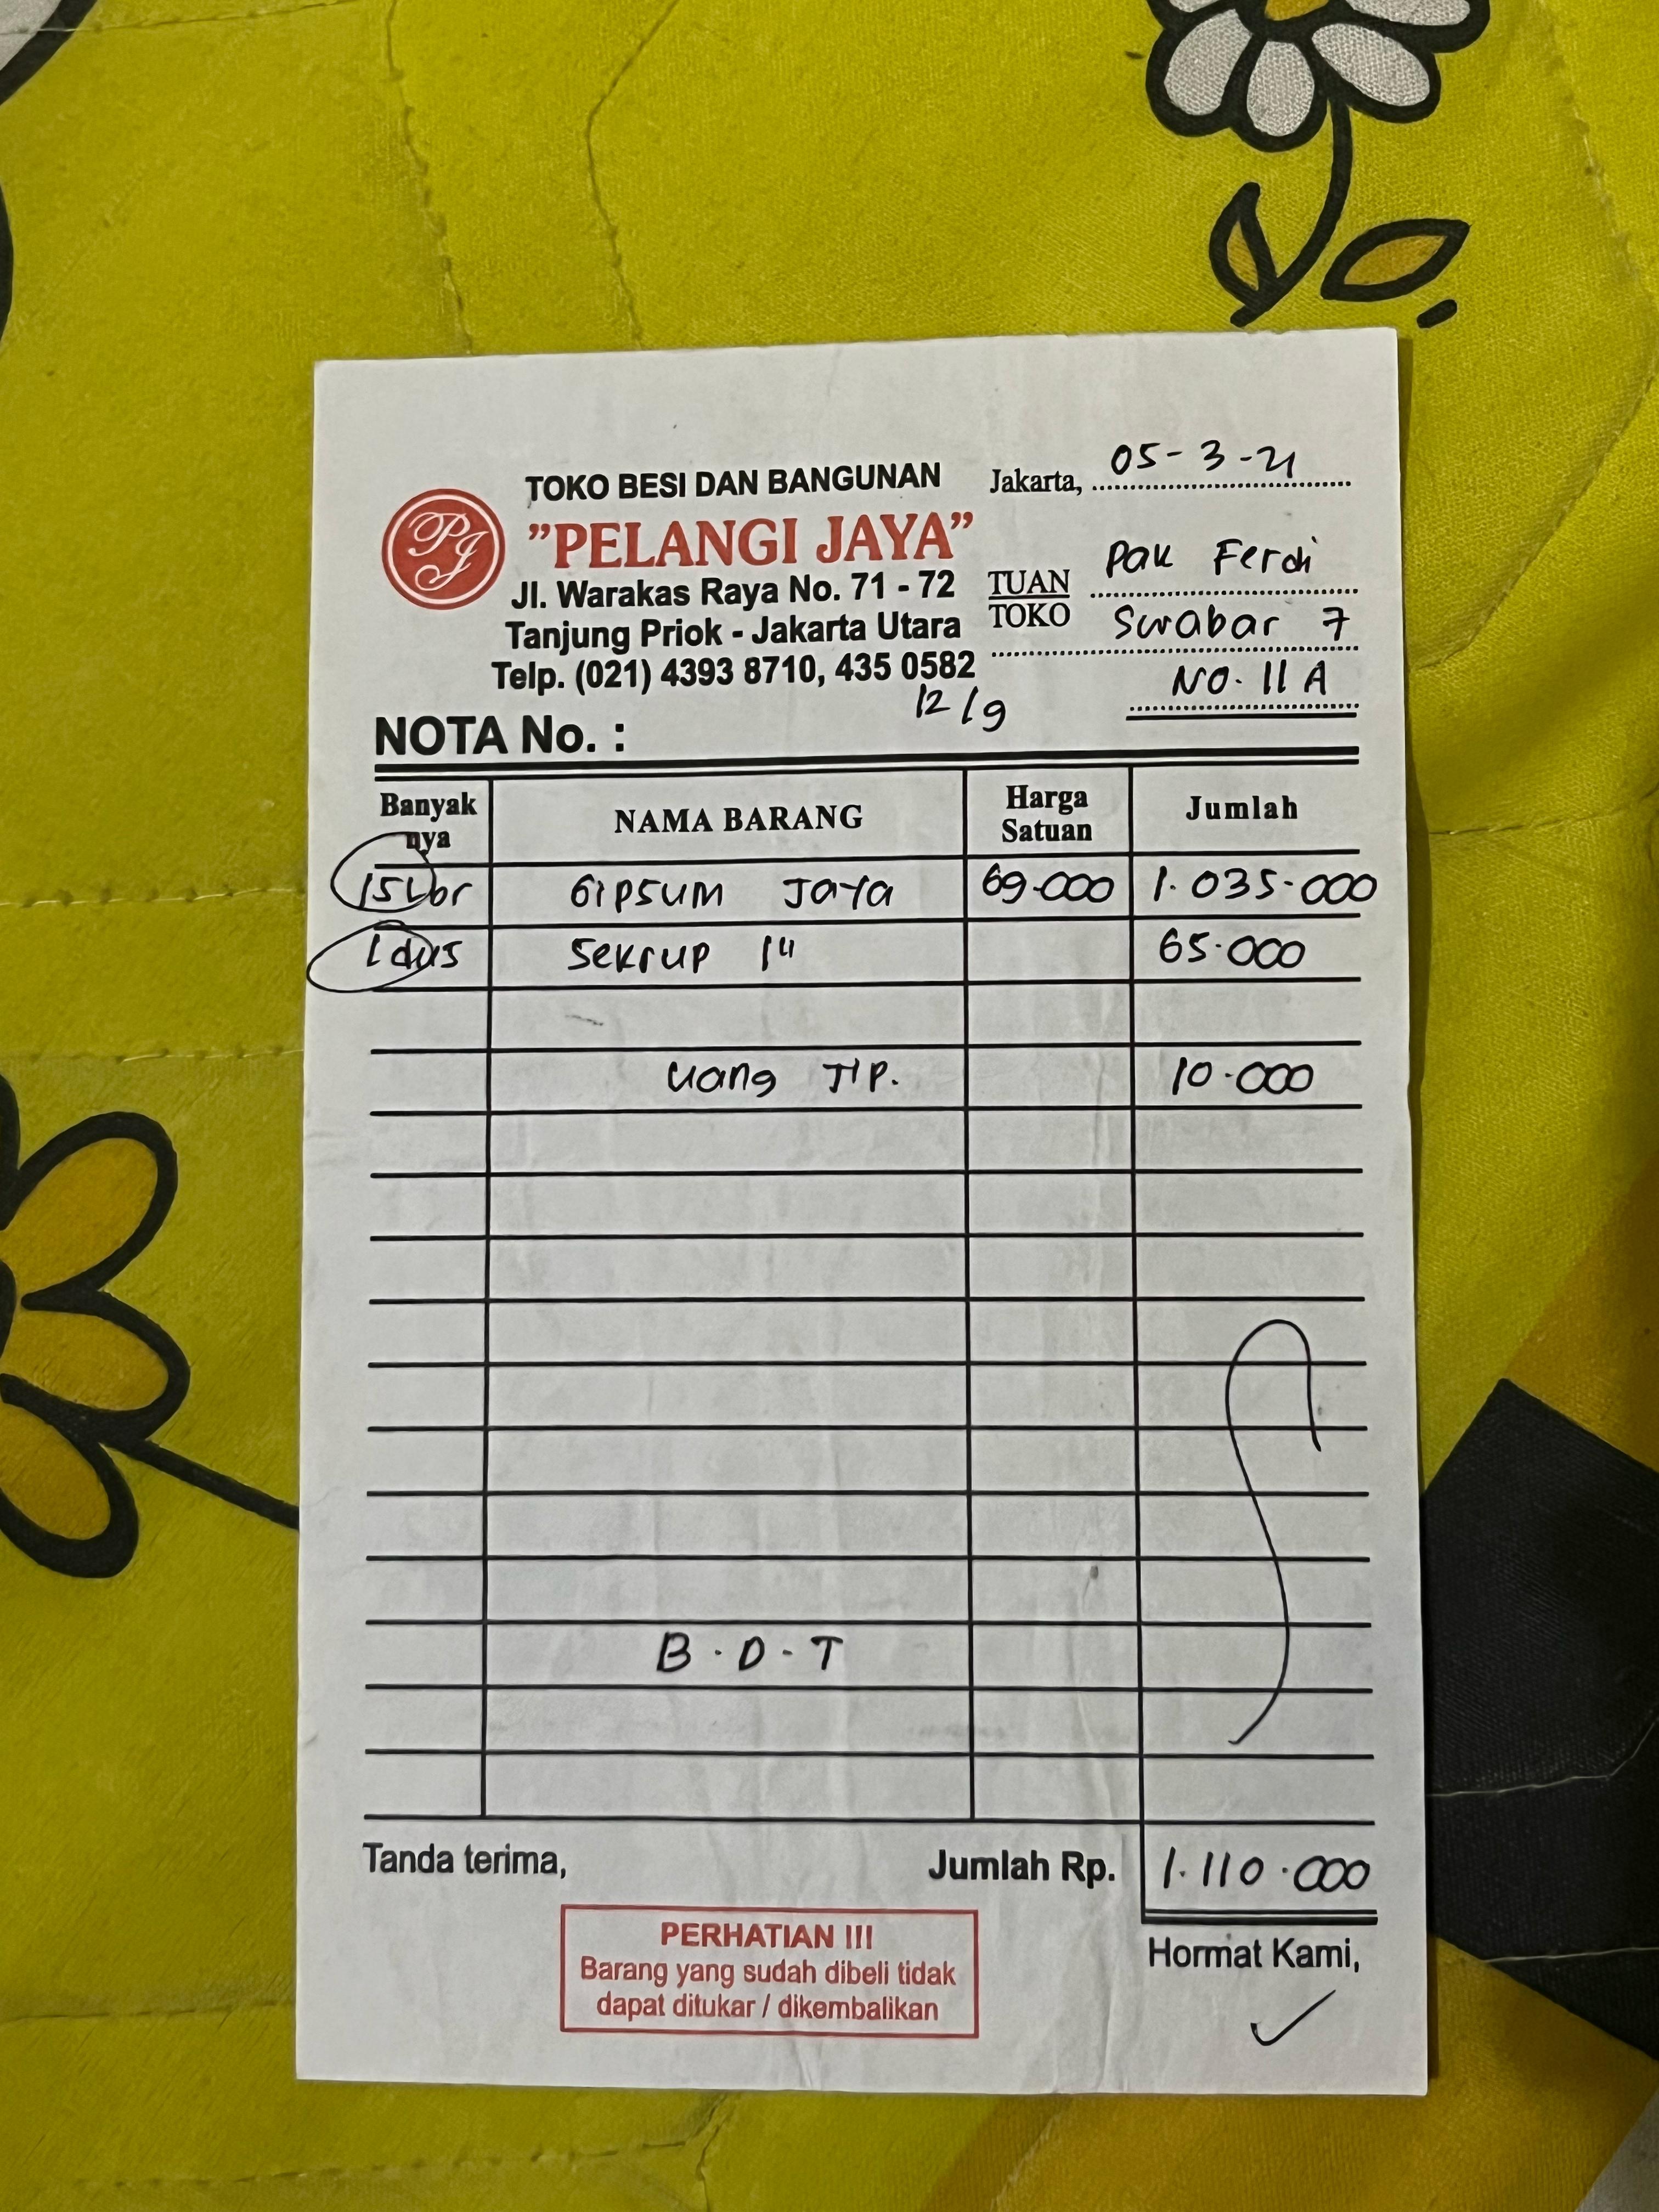 TOKO BESI DAN BANGUNAN
PJ
"PELANGI JAYA"
Jl. Warakas Raya No. 71 - 72
Tanjung Priok - Jakarta Utara
Telp. (021) 4393 8710, 435 0582
Jakarta, 05-3-21
TUAN
TOKO
Pak Ferdi
Swabar 7
NO. 11 A
12/9
NOTA No. :
Banyak nya NAMA BARANG Harga Satuan Jumlah
15 Lbr Gipsum Jaya 69.000 1.035.000
1 dus Sekrup 1" 65.000
Uang TIP. 10.000
B.D.T
Tanda terima, Jumlah Rp. 1.110.000
PERHATIAN !!!
Barang yang sudah dibeli tidak
dapat ditukar / dikembalikan
Hormat Kami,